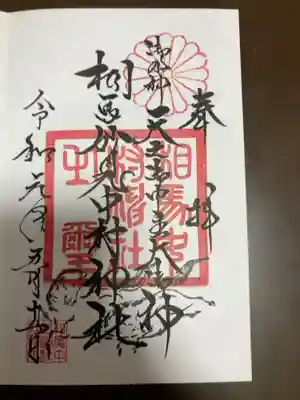 奉拝
御祭神 天之御中主大神
相馬妙見中村神社
令和元年五月
相馬中
村神社
之璽